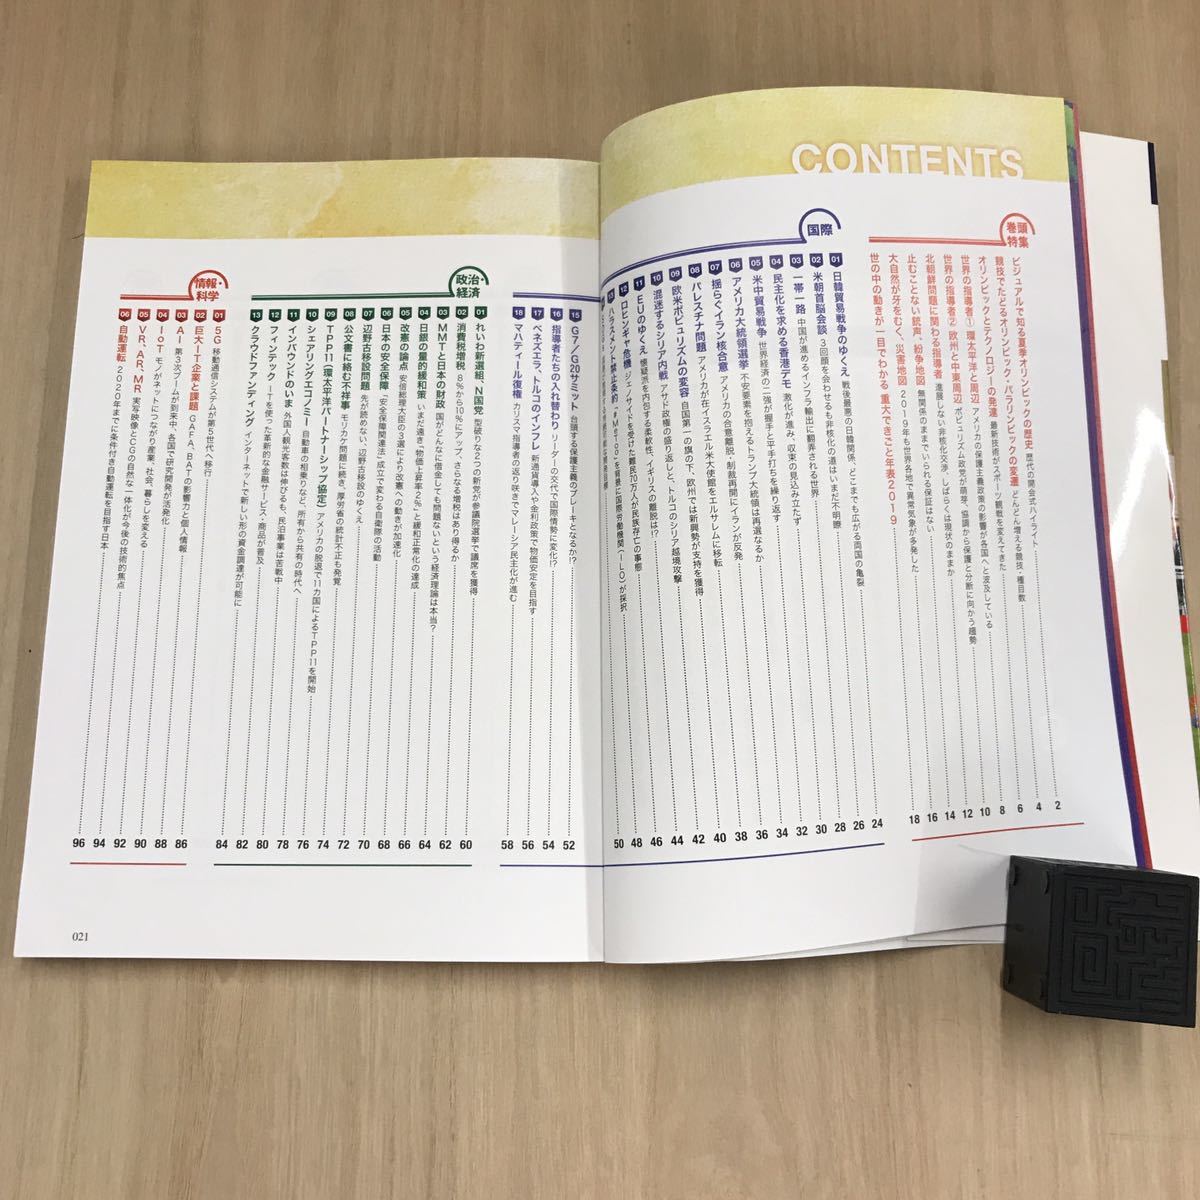 CONTENTS
巻頭特集
ビジュアルで知る夏季オリンピックの歴史 歴代の開会式ハイライト 2
競技でたどるオリンピック・パラリンピックの変遷 どんどん増える競技・種目数 4
オリンピックとテクノロジーの発達 最新技術がスポーツ観戦を変えてきた 6
世界の指導者① 環太平洋と周辺 アメリカの保護主義政策の影響が各国へと波及している 8
世界の指導者② 欧州と中東周辺 ポピュリズム政党が萌芽、協調から保護と分断に向かう趨勢 10
北朝鮮問題に関わる指導者 進展しない非核化交渉、しばらくは現状のままか 12
止むことない銃声、紛争地図 無関係のままでいられる保証はない 14
大自然が牙をむく、災害地図 2019年も世界各地で異常気象が多発した 16
世の中の動きが一目でわかる 重大できごと年表2019 18
国際
01 日韓貿易戦争のゆくえ 戦後最悪の日韓関係、どこまでも広がる両国の亀裂 24
02 米朝首脳会談 3回顔を会わせるも非核化の道はいまだ不明瞭 26
03 一帯一路 中国が進めるインフラ輸出に翻弄される世界 28
04 民主化を求める香港デモ 激化が進み、収束の見込み立たず 30
05 米中貿易戦争 世界経済の二強が握手と平手打ちを繰り返す 32
06 アメリカ大統領選挙 不安要素を抱えるトランプ大統領は再選なるか 34
07 揺らぐイラン核合意 アメリカの合意離脱・制裁再開にイランが反発 36
08 パレスチナ問題 アメリカが在イスラエル米大使館をエルサレムに移転 38
09 欧米ポピュリズムの変容 自国第一の旗の下、欧州では新興勢が支持を獲得 40
10 混迷するシリア内戦 アサド政権の盛り返しと、トルコのシリア越境攻撃 42
11 EUのゆくえ 懐疑派を内包する柔軟性、イギリスの離脱は!? 44
12 ロヒンギャ危機 ジェノサイドを受けた難民70万人が民族存亡の事態 46
13 ハラスメント禁止条約 「#MeToo」を背景に国際労働機関(ILO)が採択 48
50
15 G7/G20サミット 台頭する保護主義のブレーキとなるか!? 52
16 指導者たちの入れ替わり リーダーの交代で国際情勢に変化!? 54
17 ベネズエラ、トルコのインフレ 新通貨導入や金利政策で物価安定を目指す 56
18 マハティール復権 カリスマ指導者の返り咲きでマレーシア民主化が進む 58
政治・経済
01 れいわ新選組、N国党 型破りな2つの新党が参議院選挙で議席を獲得 60
02 消費税増税 8%から10%にアップ、さらなる増税はあり得るか 62
03 MMTと日本の財政 国がどんなに借金しても問題ないという経済理論は本当? 64
04 日銀の量的緩和策 いまだ遠き「物価上昇率2%」と緩和正常化の達成 66
05 改憲の論点 安倍総理大臣の3選により改憲への動きが加速化
06 日本の安全保障 「安全保障関連法」成立で変わる自衛隊の活動 68
07 辺野古移設問題 先が読めない、辺野古移設のゆくえ 70
08 公文書に絡む不祥事 モリカケ問題に続き、厚労省の統計不正も発覚 72
09 TPP11(環太平洋パートナーシップ協定) アメリカの脱退で11カ国によるTPP11を開始 74
10 シェアリングエコノミー 自動車の相乗りなど、所有から共有の時代へ 76
11 インバウンドのいま 外国人観光客数は伸びるも、民泊事業は苦戦中 78
12 フィンテック ITを使った革新的な金融サービス・商品が普及 80
13 クラウドファンディング インターネットで新しい形の資金調達が可能に 82
84
情報・科学
01 5G 移動通信システムが第5世代へ移行 86
02 巨大IT企業と課題 GAFA、BATの影響力と個人情報 88
03 AI 第3次ブームが到来中、各国で研究開発が活発化 90
04 IoT モノがネットにつながり産業、社会、暮らしを変える 92
05 VR、AR、MR 実写映像とCGの自然な一体化が今後の技術的焦点 94
06 自動運転 2020年までに条件付き自動運転を目指す日本 96
021